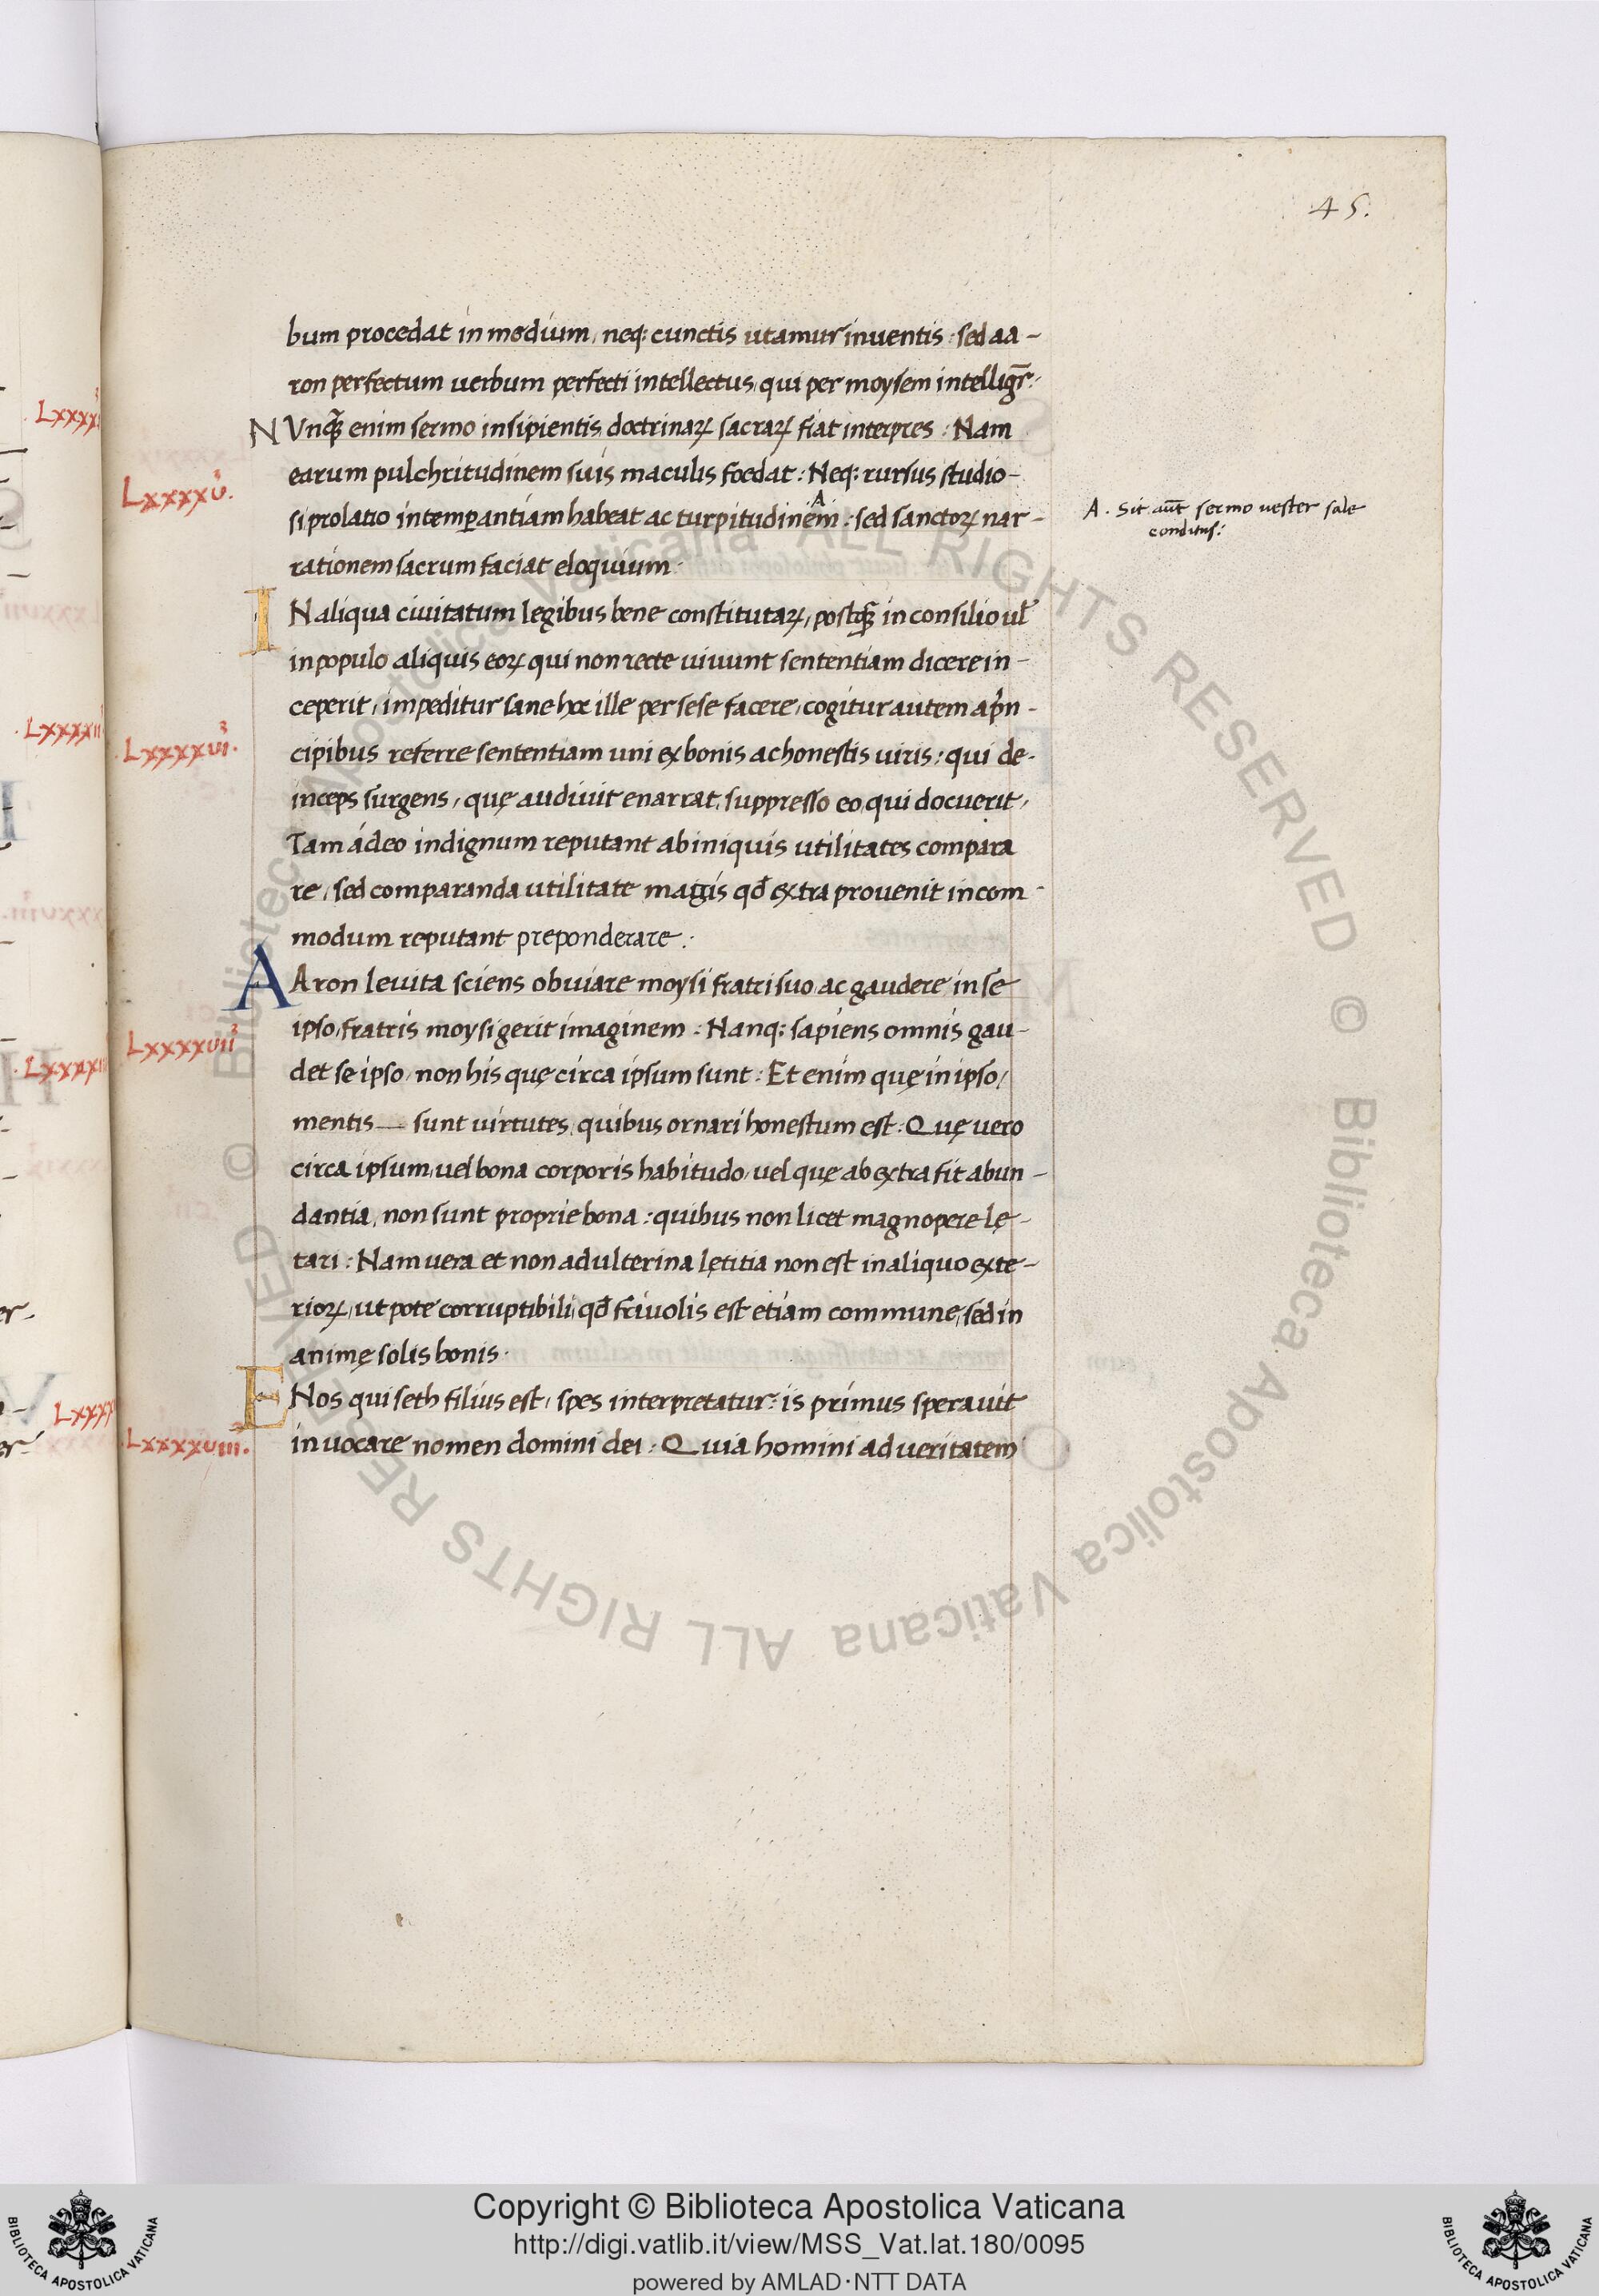 45.
bum procedat in medium, neq; cunctis utamur inuentis: sed aa-
ron perfectum uerbum perfecti intellectus, qui per moysem intelligr̄:
NVnq̄ enim sermo insipientis doctrinaꝝ sacraꝝ fiat interpres: Nam
earum pulchritudinem suis maculis foedat: Neq; rursus studio-
Lxxxxv.
si prolatio intemꝑantiam habeat ac turpitudinem A: sed sanctoꝝ nar-
A. Sit aūt sermo uester sale
conditus:
rationem sacrum faciat eloquium.
IN aliqua ciuitatum legibus bene constitutaꝝ, postq̄ in consilio ul̄
in populo aliquis eoꝝ qui non recte uiuunt sententiam dicere in-
ceperit, impeditur sane hoc ille per sese facere, cogitur autem a prin-
Lxxxxvi.
cipibus referre sententiam uni ex bonis ac honestis uiris: qui de-
inceps surgens, quę audiuit enarrat, suppresso eo, qui docuerit,
Tam ádeo indignum reputant ab iniquis utilitates compara
re, sed comparanda utilitate magis qđ extra prouenit incom-
modum reputant preponderare.
AAron leuita sciens obuiare moysi fratri suo, ac gaudere in se
ipso, fratris moysi gerit imaginem: Nanq; sapiens omnis gau-
Lxxxxvii
det se ipso, non his quę circa ipsum sunt: Et enim quę in ipso,
mentis — sunt uirtutes, quibus ornari honestum est: Quę uero
circa ipsum, uel bona corporis habitudo, uel quę ab extra fit abun-
dantia, non sunt proprie bona: quibus non licet magnopere lę-
tari: Nam uera et non adulterina lętitia non est in aliquo exte-
rioꝝ, ut pote corruptibili, qđ friuolis est etiam commune, sed in
animę solis bonis.
ENos qui seth filius est, spes interpretatur: is primus sperauit
Lxxxxviii.
inuocare nomen domini dei: Quia homini ad ueritatem
Lxxxx
Lxxxxii
Lxxxx
Lxxxx
© Biblioteca Apostolica Vaticana ALL RIGHTS RESERVED © Biblioteca Apostolica Vaticana ALL RIGHTS RESERVED
Copyright © Biblioteca Apostolica Vaticana
http://digi.vatlib.it/view/MSS_Vat.lat.180/0095
powered by AMLAD·NTT DATA
BIBLIOTECA APOSTOLICA VATICANA
BIBLIOTECA APOSTOLICA VATICANA